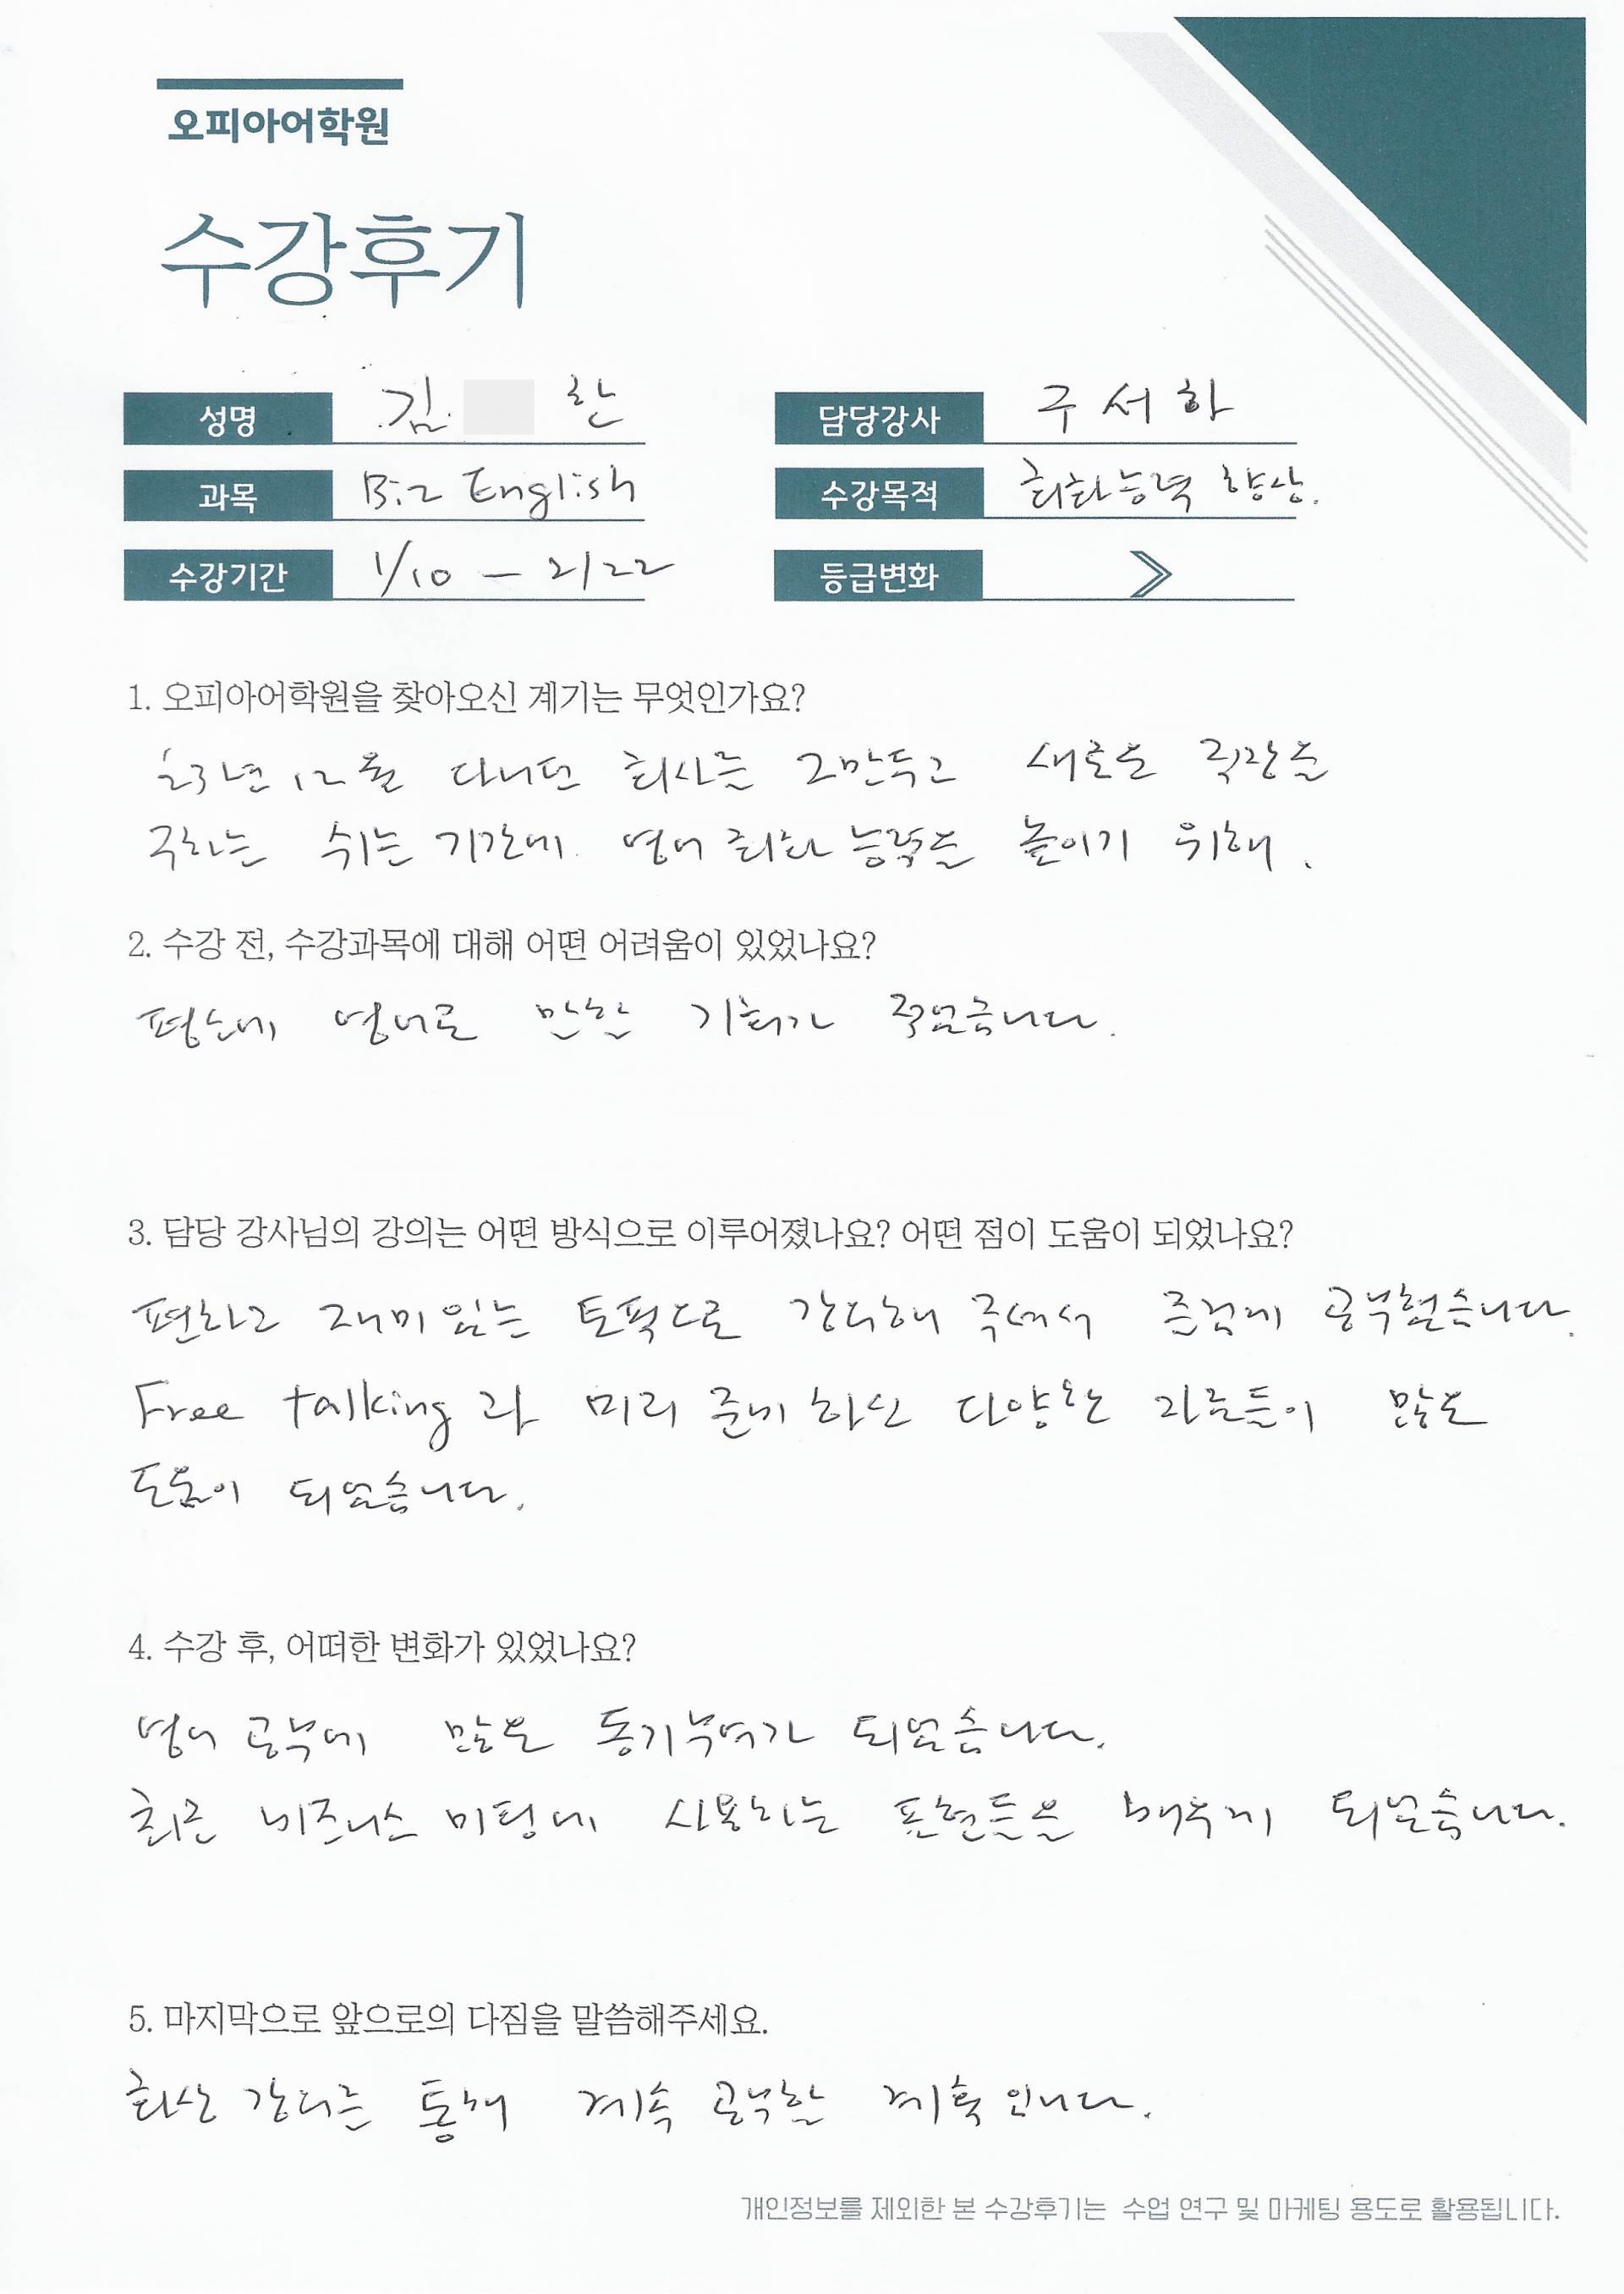 오피아어학원
수강후기
성명 김 한 담당강사 구서하
과목 Biz English 수강목적 회화능력 향상.
수강기간 1/10 - 2/22 등급변화
1. 오피아어학원을 찾아오신 계기는 무엇인가요?
'23년 12월 다니던 회사를 그만두고 새로운 직장을
구하는 쉬는 기간에 영어 회화 능력을 높이기 위해.
2. 수강 전, 수강과목에 대해 어떤 어려움이 있었나요?
평소에 영어로 말할 기회가 적었습니다.
3. 담당 강사님의 강의는 어떤 방식으로 이루어졌나요? 어떤 점이 도움이 되었나요?
편하고 재미있는 토픽으로 강의해 주셔서 즐겁게 공부했습니다.
Free talking과 미리 준비하신 다양한 자료들이 많은
도움이 되었습니다.
4. 수강 후, 어떠한 변화가 있었나요?
영어 공부에 많은 동기부여가 되었습니다.
최근 비즈니스 미팅에 사용하는 표현들을 배우게 되었습니다.
5. 마지막으로 앞으로의 다짐을 말씀해주세요.
화상 강의를 통해 계속 공부할 계획입니다.
개인정보를 제외한 본 수강후기는 수업 연구 및 마케팅 용도로 활용됩니다.